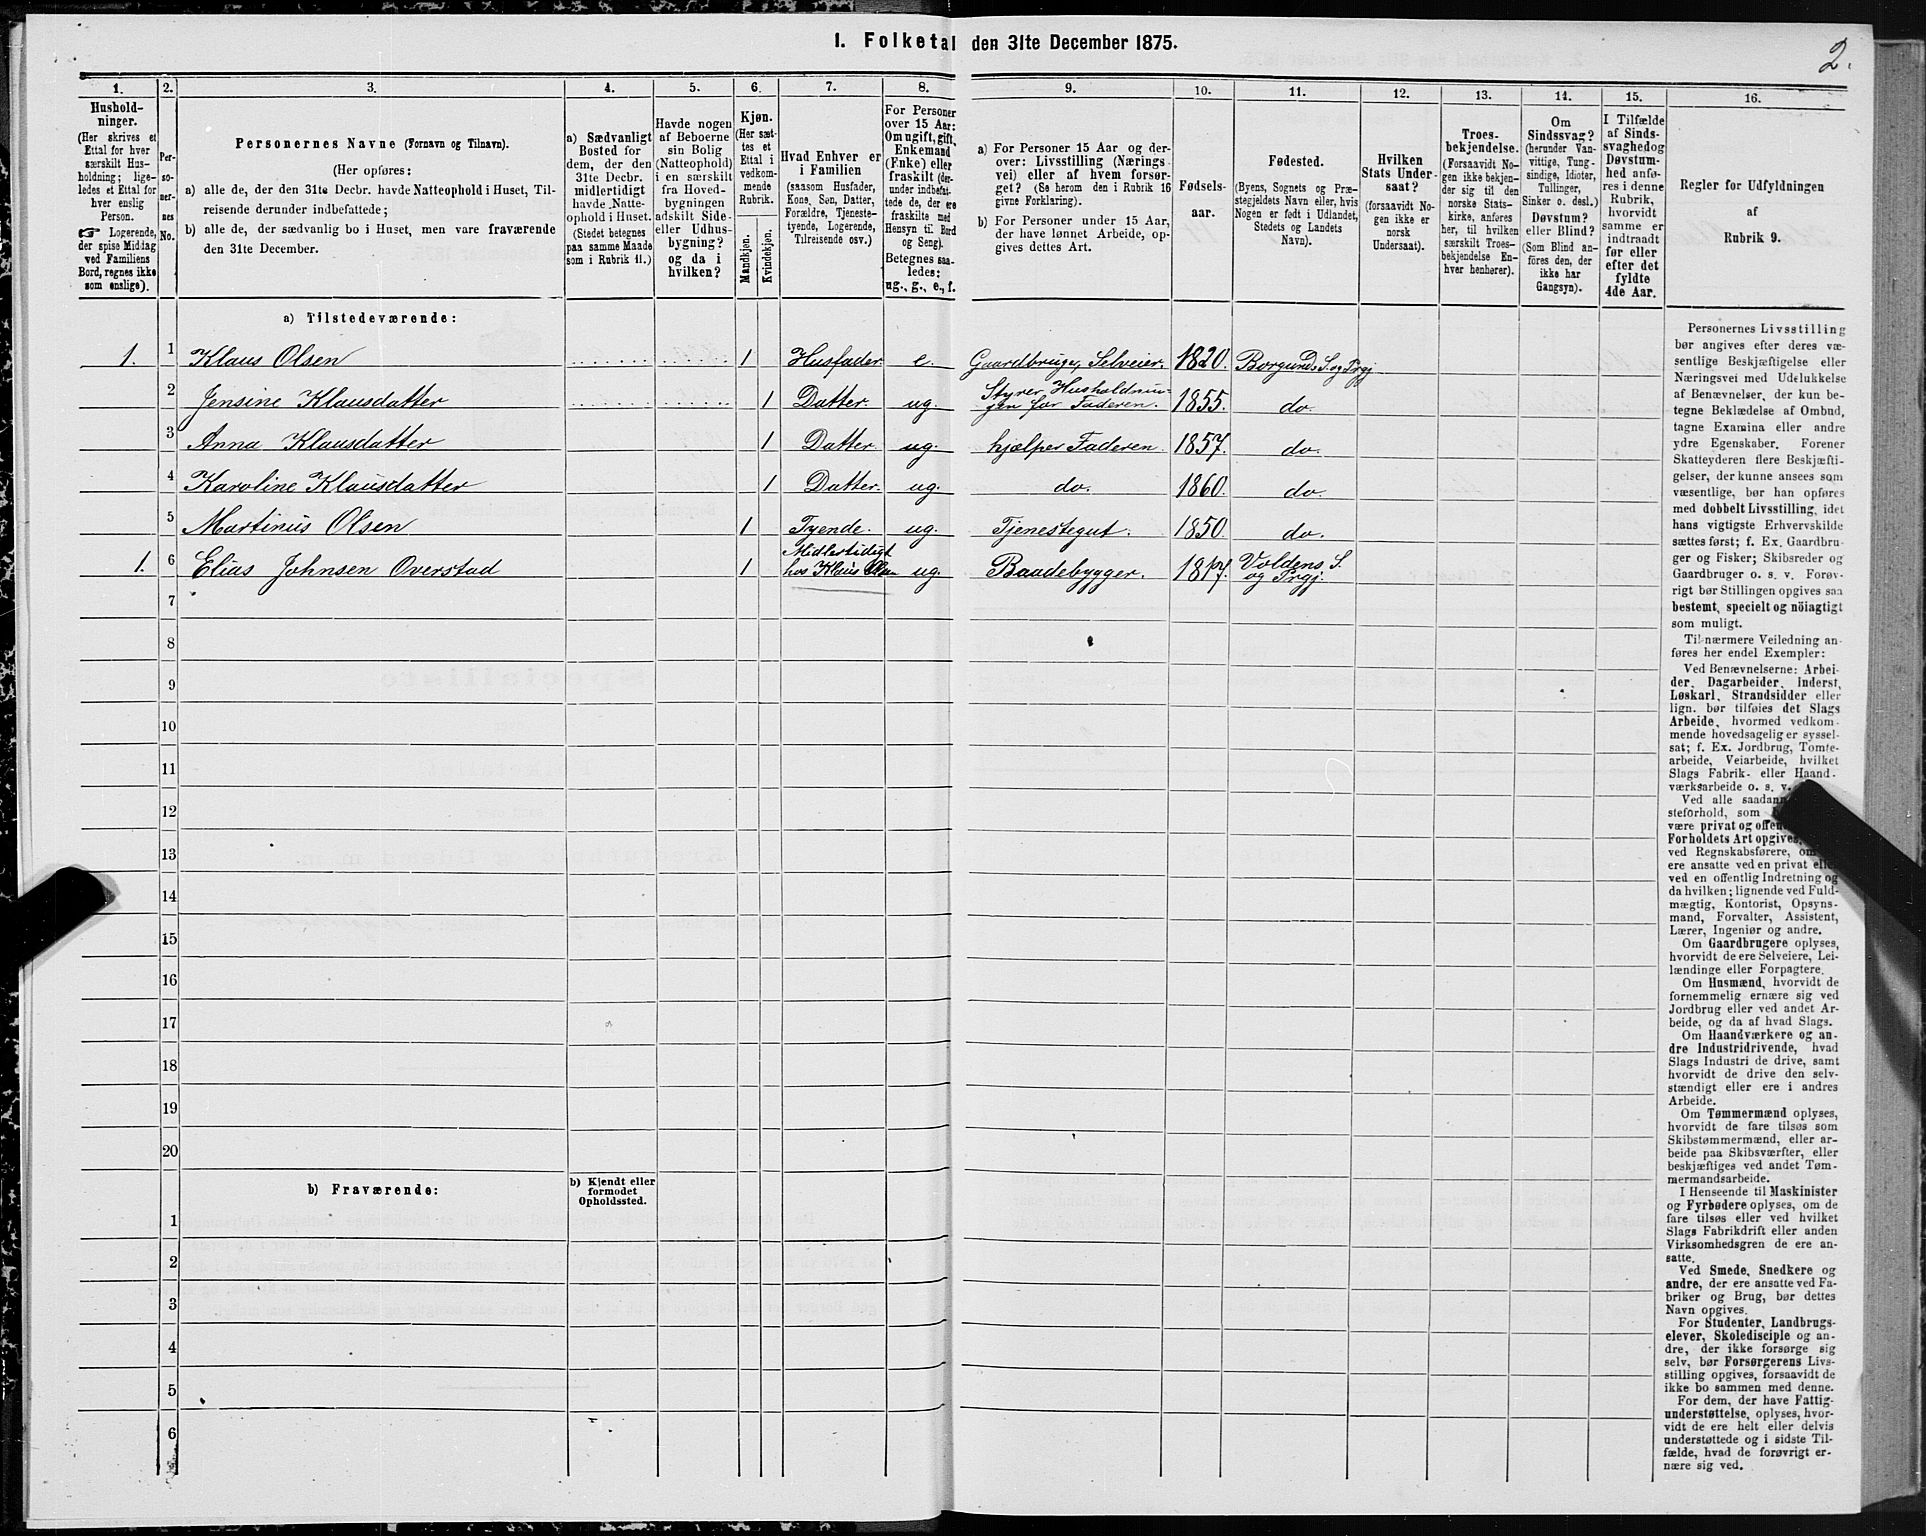 I. Folketal den 31te December 1875.
2.
1.
Hushold-
ninger.
(Her skrives et
Ettal for hver
særskilt Hus-
holdning; lige-
ledes et Ettal for
hver enslig
Person.
☞ Logerende,
der spise Middag
ved Familiens
Bord, regnes ikke
som enslige).
2.
Per-
so-
ner-
nes
No.
3.
Personernes Navne (Fornavn og Tilnavn).
(Her opføres:
a) alle de, der den 31te Decbr. havde Natteophold i Huset, Til-
reisende derunder indbefattede;
b) alle de, der sædvanlig bo i Huset, men vare fraværende
den 31te December.
4.
a) Sædvanligt
Bosted for
dem, der den
31te Decbr.
midlertidigt
havde Natte-
ophold i Huset.
(Stedet betegnes
paa samme Maade
som i Rubrik 11.)
5.
Havde nogen
af Beboerne
sin Bolig
(Natteophold)
i en særskilt
fra Hoved-
bygningen
adskilt Side-
eller Udhus-
bygning?
og da i
hvilken?
6.
Kjøn.
(Her sæt-
tes et
Ettal i
vedkom-
mende
Rubrik.
Mandkjøn.
Kvindekjøn.
7.
Hvad Enhver er
i Familien
(saasom Husfader,
Kone, Søn, Datter,
Forældre, Tjeneste-
tyende, Logerende,
Tilreisende osv.)
8.
For Personer
over 15 Aar:
Om ugift, gift,
Enkemand
(Enke) eller
fraskilt (der-
under indbefat-
tede de, der ere
fraskilte med
Hensyn til Bord
og Seng).
Betegnes saa-
ledes:
ug., g., e., f.
9.
a) For Personer 15 Aar og der-
over: Livsstilling (Nærings-
vei) eller af hvem forsør-
get? (Se herom den i Rubrik 16
givne Forklaring).
b) For Personer under 15 Aar,
der have lønnet Arbeide, op-
gives dettes Art.
10.
Fødsels-
aar.
11.
Fødested.
(Byens, Sognets og Præ-
stegjeldets Navn eller, hvis
Nogen er født i Udlandet,
Stedets og Landets
Navn).
12.
Hvilken
Stats Under-
saat?
(forsaavidt No-
gen ikke er
norsk
Undersaat).
13.
Troes-
bekjendelse.
(Forsaavidt No-
gen ikke bekjen-
der sig til den
norske Stats-
kirke, anføres
her, til hvilken
særskilt Troes-
bekjendelse En-
hver henhører).
14.
Om
Sindssvag?
(herunder Van-
vittige, Tung-
sindige, Idioter,
Tullinger,
Sinker o. desl.)
Døvstum?
eller Blind?
(Som Blind an-
føres den, der
ikke har
Gangsyn).
15.
I Tilfælde
af Sinds-
svaghed og
Døvstum-
hed anfø-
res i denne
Rubrik,
hvorvidt
samme er
indtraadt
før eller
efter det
fyldte
4de Aar.
16.
Regler for Udfyldningen
af
Rubrik 9.
a) Tilstedeværende:
1. 1 Klaus Olsen 1 Husfader. e. Gaardbruger, Selveier. 1820. Borgunds S. og Prgj
2 Jensine Klausdatter 1 Datter. ug. Styrer Husholdnin-
gen for Faderen. 1855. do.
3 Anna Klausdatter 1 Datter. ug. hjælper Faderen. 1857. do.
4 Karoline Klausdatter 1 Datter. ug. do. 1860. do.
5 Martinus Olsen 1 Tyende. ug. Tjenestegut. 1850. do.
1. 6 Elias Johnsen Overstad 1 Midlertidigt
hos Klaus Olsen ug. Baadebygger. 1817. Voldens S.
og Prgj.
7
8
9
10
11
12
13
14
15
16
17
18
19
20
b) Fraværende:
b) Kjendt eller
formodet
Opholdssted.
1
2
3
4
5
6
Personernes Livsstilling
bør angives efter deres væ-
sentlige Beskjæftigelse eller
Næringsvei med Udelukkelse
af Benævnelser, der kun be-
tegne Beklædelse af Ombud,
tagne Examina eller andre
ydre Egenskaber. Forener
Skatteyderen flere Beskjæfti-
gelser, der kunne ansees som
væsentlige, bør han opføres
med dobbelt Livsstilling, idet
hans vigtigste Erhvervskilde
sættes først; f. Ex. Gaardbru-
ger og Fisker; Skibsreder og
Gaardbruger o. s. v. Forøv-
rigt bør Stillingen opgives saa
bestemt, specielt og nöiagtigt
som muligt.
Til nærmere Veiledning an-
føres her endel Exempler:
Ved Benævnelserne: Arbei-
der, Dagarbeider, Inderst,
Løskarl, Strandsidder eller
lign. bør tilføies det Slags
Arbeide, hvormed vedkom-
mende hovedsagelig er syssel-
sat; f. Ex. Jordbrug, Tomte-
arbeide, Veiarbeide, hvilket
Slags Fabrik- eller Haand-
værksarbeide o. s. v.
Ved alle saadann
steforhold, som
være privat og offen
Forholdets Art opgives,
ved Regnskabsførere, om
ere ansatte ved en privat eller
ved en offentlig Indretning og
da hvilken; lignende ved Fuld-
mægtig, Kontorist, Opsyns-
mand, Forvalter, Assistent,
Lærer, Ingeniør og andre.
Om Gaardbrugere oplyses,
hvorvidt de ere Selveiere, Lei-
lændinge eller Forpagtere.
Om Husmænd, hvorvidt de
fornemmelig ernære sig ved
Jordbrug eller ved andet Ar-
beide, og da af hvad Slags.
Om Haandværkere og an-
dre Industridrivende, hvad
Slags Industri de drive, samt
hvorvidt de drive den selv-
stændigt eller ere i andres
Arbeide.
Om Tømmermænd oplyses,
hvorvidt de fare tilsøs som
Skibstømmermænd, eller ar-
beide paa Skibsværfter, eller
beskjæftiges ved andet Tøm-
mermandsarbeide.
I Henseende til Maskinister
og Fyrbødere oplyses, om de
fare tilsøs eller ved hvilket
Slags Fabrikdrift eller anden
Virksomhedsgren de ere an-
satte.
Ved Smede, Snedkere og
andre, der ere ansatte ved Fa-
briker og Brug, bør dettes
Navn opgives.
For Studenter, Landbrugs-
elever, Skoledisciple og an-
dre, der ikke forsørge sig
selv, bør Forsørgerens Livs-
stilling opgives, forsaavidt de
ikke bo sammen med denne.
For dem, der have Fattig-
understøttelse, oplyses, hvor-
vidt de ere helt eller delvis
understøttede og i sidste Til-
fælde, hvad de forøvrigt er-
nære sig ved.